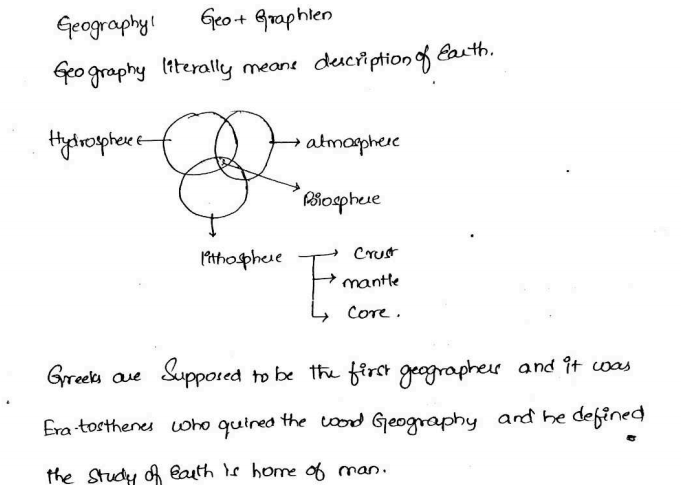 Geography: Geo + Graphien
Geography literally means description of Earth.
Hydrosphere
atmosphere
Biosphere
lithosphere
Crust
mantle
Core.
Greeks are Supposed to be the first geographers and it was
Era-tosthenes who quined the word Geography and he defined
the study of Earth is home of man.